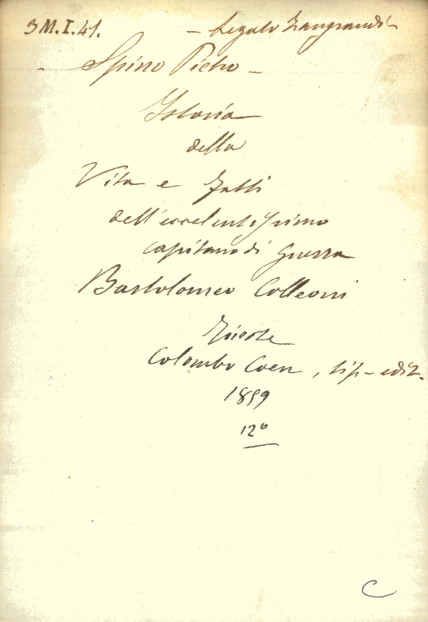 3 M. I. 41. - Legato Zangrandi -
- Spino Pietro -
Istoria
della
Vita e fatti
dell'eccelentissimo
capitano di guerra
Bartolomeo Colleoni
Trieste
Colombo Coen, tip-edit.
1859
12º
C